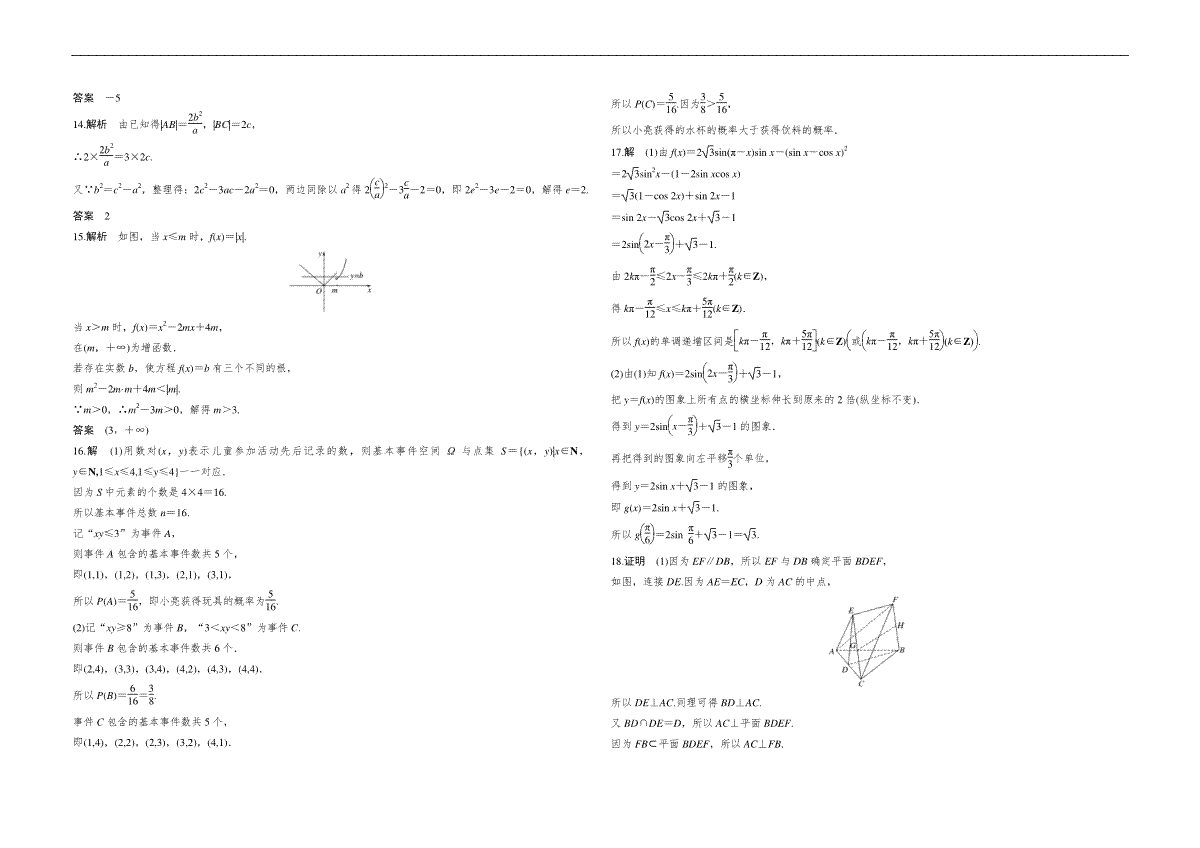 答案　-5
14.解析　由已知得|AB|=2b²/a，|BC|=2c，
∴2×2b²/a=3×2c.
又∵b²=c²-a²，整理得：2c²-3ac-2a²=0，两边同除以 a²得 2(c/a)²-3c/a-2=0，即 2e²-3e-2=0，解得 e=2.
答案　2
15.解析　如图，当 x≤m 时，f(x)=|x|.
y
y=b
O m x
当 x>m 时，f(x)=x²-2mx+4m，
在(m，+∞)为增函数.
若存在实数 b，使方程 f(x)=b 有三个不同的根，
则 m²-2m·m+4m<|m|.
∵m>0，∴m²-3m>0，解得 m>3.
答案　(3，+∞)
16.解　(1)用数对(x，y)表示儿童参加活动先后记录的数，则基本事件空间 Ω 与点集 S={(x，y)|x∈N，
y∈N,1≤x≤4,1≤y≤4}一一对应.
因为 S 中元素的个数是 4×4=16.
所以基本事件总数 n=16.
记“xy≤3”为事件 A，
则事件 A 包含的基本事件数共 5 个，
即(1,1)，(1,2)，(1,3)，(2,1)，(3,1)，
所以 P(A)=5/16，即小亮获得玩具的概率为5/16.
(2)记“xy≥8”为事件 B，“3<xy<8”为事件 C.
则事件 B 包含的基本事件数共 6 个.
即(2,4)，(3,3)，(3,4)，(4,2)，(4,3)，(4,4).
所以 P(B)=6/16=3/8.
事件 C 包含的基本事件数共 5 个，
即(1,4)，(2,2)，(2,3)，(3,2)，(4,1).
所以 P(C)=5/16.因为3/8>5/16，
所以小亮获得的水杯的概率大于获得饮料的概率.
17.解　(1)由 f(x)=2√3sin(π-x)sin x-(sin x-cos x)²
=2√3sin²x-(1-2sin xcos x)
=√3(1-cos 2x)+sin 2x-1
=sin 2x-√3cos 2x+√3-1
=2sin(2x-π/3)+√3-1.
由 2kπ-π/2≤2x-π/3≤2kπ+π/2(k∈Z)，
得 kπ-π/12≤x≤kπ+5π/12(k∈Z).
所以 f(x)的单调递增区间是[kπ-π/12，kπ+5π/12](k∈Z)(或(kπ-π/12，kπ+5π/12)(k∈Z)).
(2)由(1)知 f(x)=2sin(2x-π/3)+√3-1，
把 y=f(x)的图象上所有点的横坐标伸长到原来的 2 倍(纵坐标不变).
得到 y=2sin(x-π/3)+√3-1 的图象.
再把得到的图象向左平移π/3个单位，
得到 y=2sin x+√3-1 的图象，
即 g(x)=2sin x+√3-1.
所以 g(π/6)=2sin π/6+√3-1=√3.
18.证明　(1)因为 EF∥DB，所以 EF 与 DB 确定平面 BDEF，
如图，连接 DE.因为 AE=EC，D 为 AC 的中点，
F
E
H
G
A B
D
C
所以 DE⊥AC.同理可得 BD⊥AC.
又 BD∩DE=D，所以 AC⊥平面 BDEF.
因为 FB⊂平面 BDEF，所以 AC⊥FB.